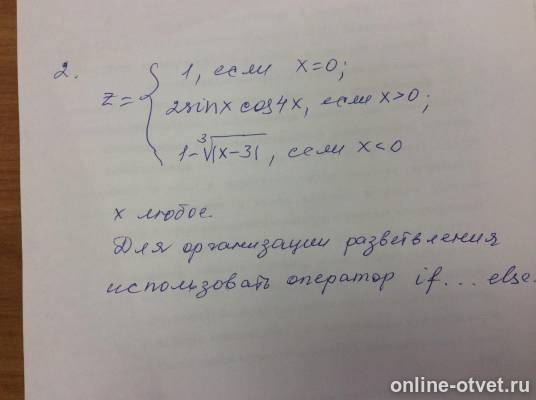 2.
z = { 1, если x=0;
2sinx cos4x, если x>0;
1-∛|x-3|, если x<0
x любое.
Для организации разветвления
использовать оператор if... else.
online-otvet.ru